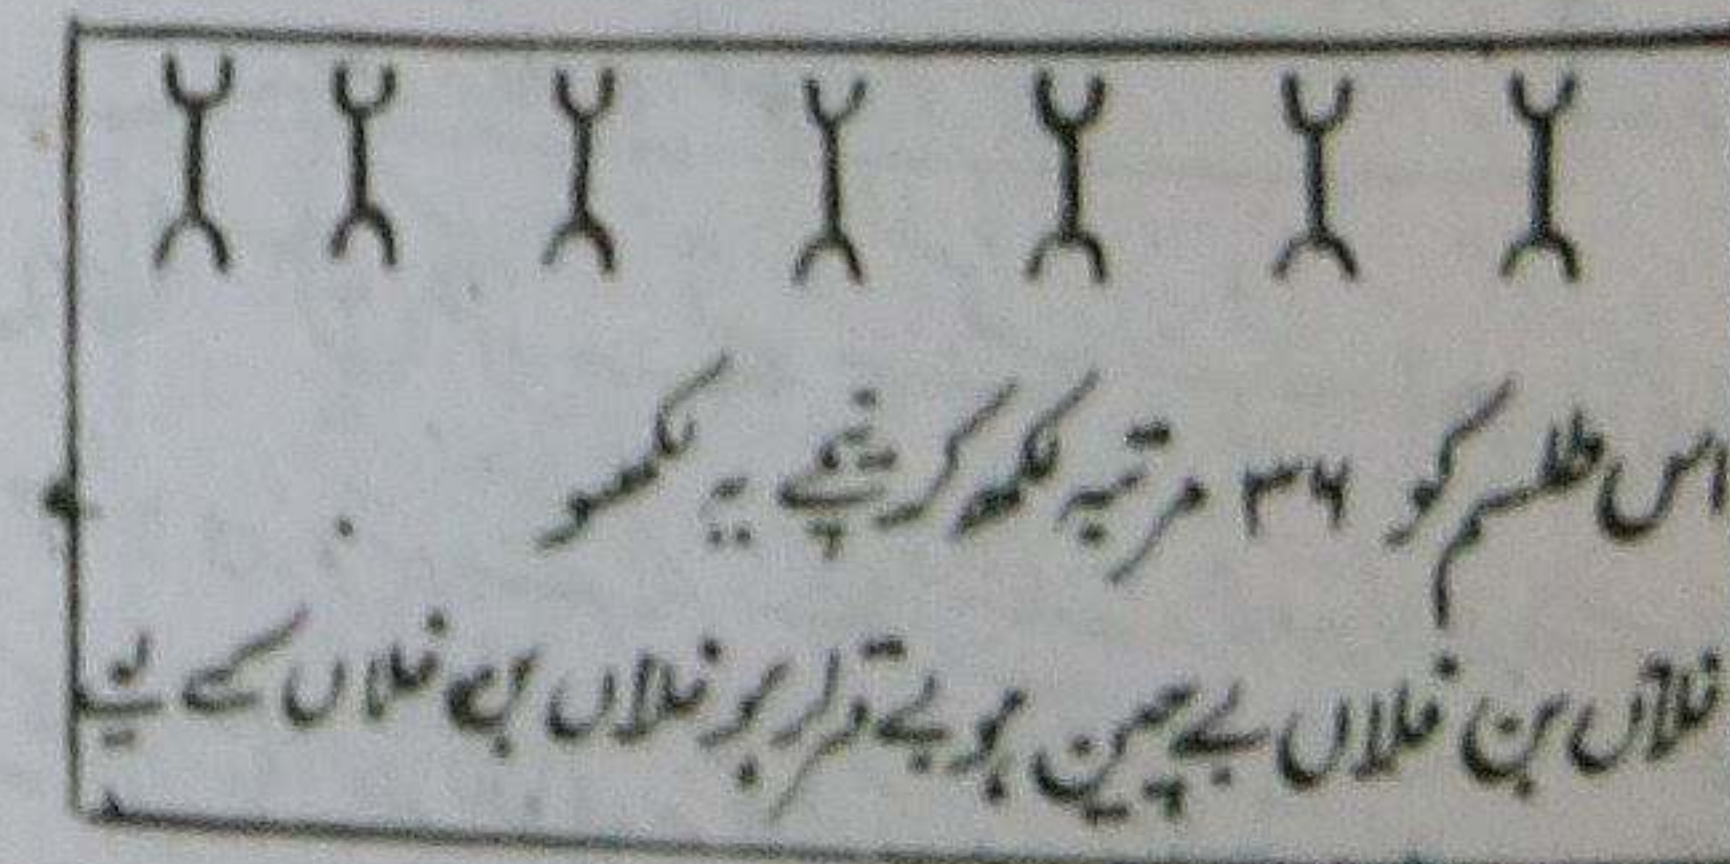 اس طلسم کو ۳۶ مرتبہ لکھ کر نیچے یہ لکھو
فلاں بن فلاں بے چین ہو بے قرار ہو فلاں بن فلاں کے لئے